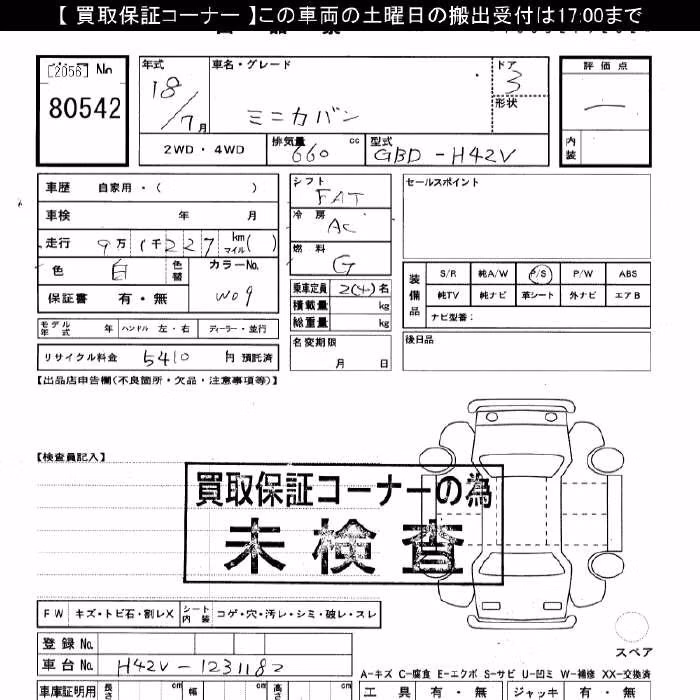 【 買取保証コーナー 】この車両の土曜日の搬出受付は17:00まで
[2056] No 80542
年式 18/7月
車名・グレード ミニカバン
ドア 3
形状
評価点 一
内装
2WD・4WD
排気量 660 cc
型式 GBD-H42V
車歴 自家用・( )
車検 年 月
走行 9万1千227 km マイル( )
色 白 色替 カラーNo. W09
保証書 有・無
モデル年式 年 ハンドル 左・右 ディーラー・並行
リサイクル料金 5410 円 預託済
シフト FAT
冷房 AC
燃料 G
乗車定員 2(4)名
積載量 kg
総重量 kg
名変期限 月 日
セールスポイント
装備品
S/R 純A/W P/S P/W ABS
純TV 純ナビ 革シート 外ナビ エアB
ナビ型番:
後日品
【出品店申告欄(不良箇所・欠品・注意事項等)】
【検査員記入】
買取保証コーナーの為
未検査
FW キズ・トビ石・割レX シート内装 コゲ・穴・汚レ・シミ・破レ・スレ
登録 No.
車台 No. H42V-1231182
スペア
A-キズ C-腐食 E-エクボ S-サビ U-凹ミ W-補修 XX-交換済
車庫証明用 長さ cm 幅 cm 高さ cm
工具 有・無 ジャッキ 有・無